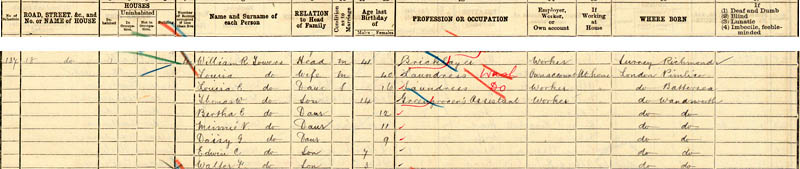 No. of Inhabited
ROAD, STREET, &c., and No. or NAME of HOUSE
HOUSES
Inhabited
Uninhabited
Building
Name and Surname of each Person
RELATION to Head of Family
Condition as to Marriage
Age last Birthday of
Males
Females
PROFESSION OR OCCUPATION
Employer, Worker, or Own account
If Working at Home
WHERE BORN
If
(1) Deaf and Dumb
(2) Blind
(3) Lunatic
(4) Imbecile, feeble-minded
do William R Towers Head M 41 Bricklayer Worker Surrey Richmond
Louisa do Wife M 40 Laundress Own account At home London Pimlico
Louisa E do Daur S 16 Laundress Do Worker do Battersea
Thomas W do Son 14 Greengrocer's Assistant Worker do Wandsworth
Bertha E do Daur 12 do do
Minnie V do Daur 11 do do
Daisy G do Daur 9 do do
Edwin C do Son 7 do do
Walter F do Son 3 do do